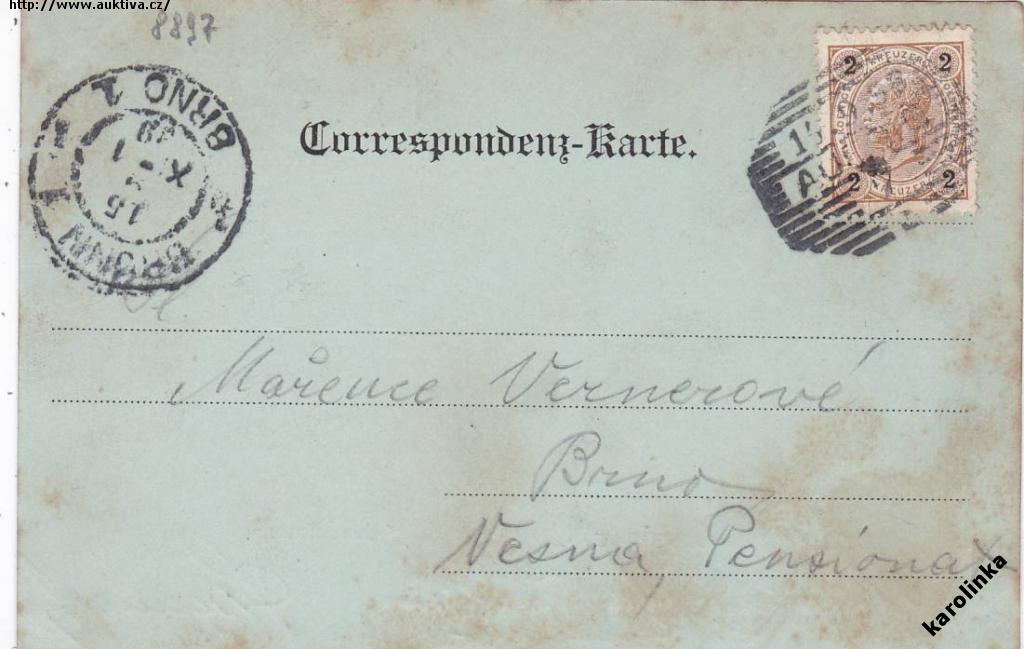 http://www.auktiva.cz/
8897
BRNO 1
BRÜNN
15
99
Correspondenz-Karte.
2 KREUZER 2
2 KREUZER 2
Sl.
Mařence Vernerové
Brno
Vesna, Pensionat
karolinka